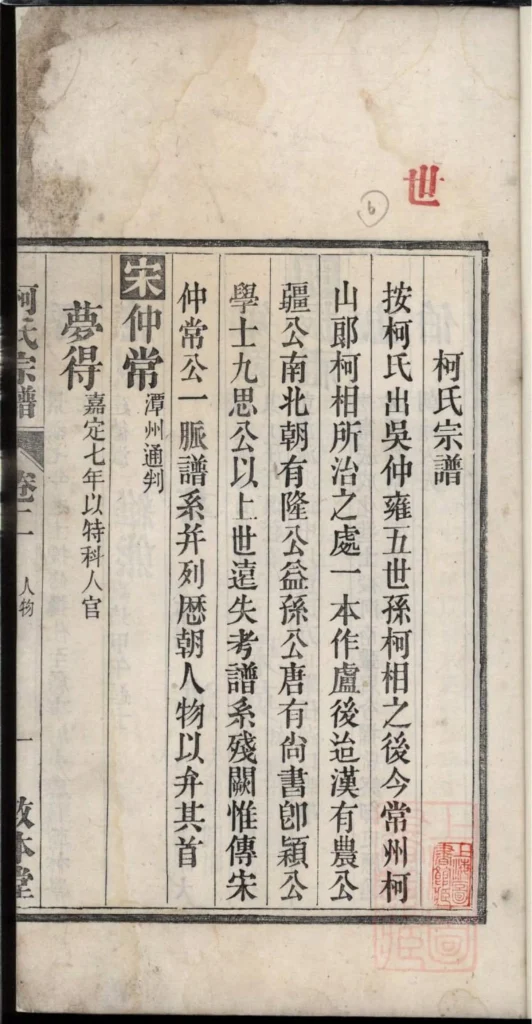 世
6
柯氏宗譜
按柯氏出吳仲雍五世孫柯相之後今常州柯
山郎柯相所治之處一本作盧後迨漢有農公
疆公南北朝有隆公益孫公唐有尚書卽潁公
學士九思公以上世遠失考譜系殘闕惟傳宋
仲常公一脈譜系并列歷朝人物以弁其首
宋仲常 潭州通判
夢得 嘉定七年以特科人官
柯氏宗譜 卷二 人物 一 敦本堂
上海圖書館藏